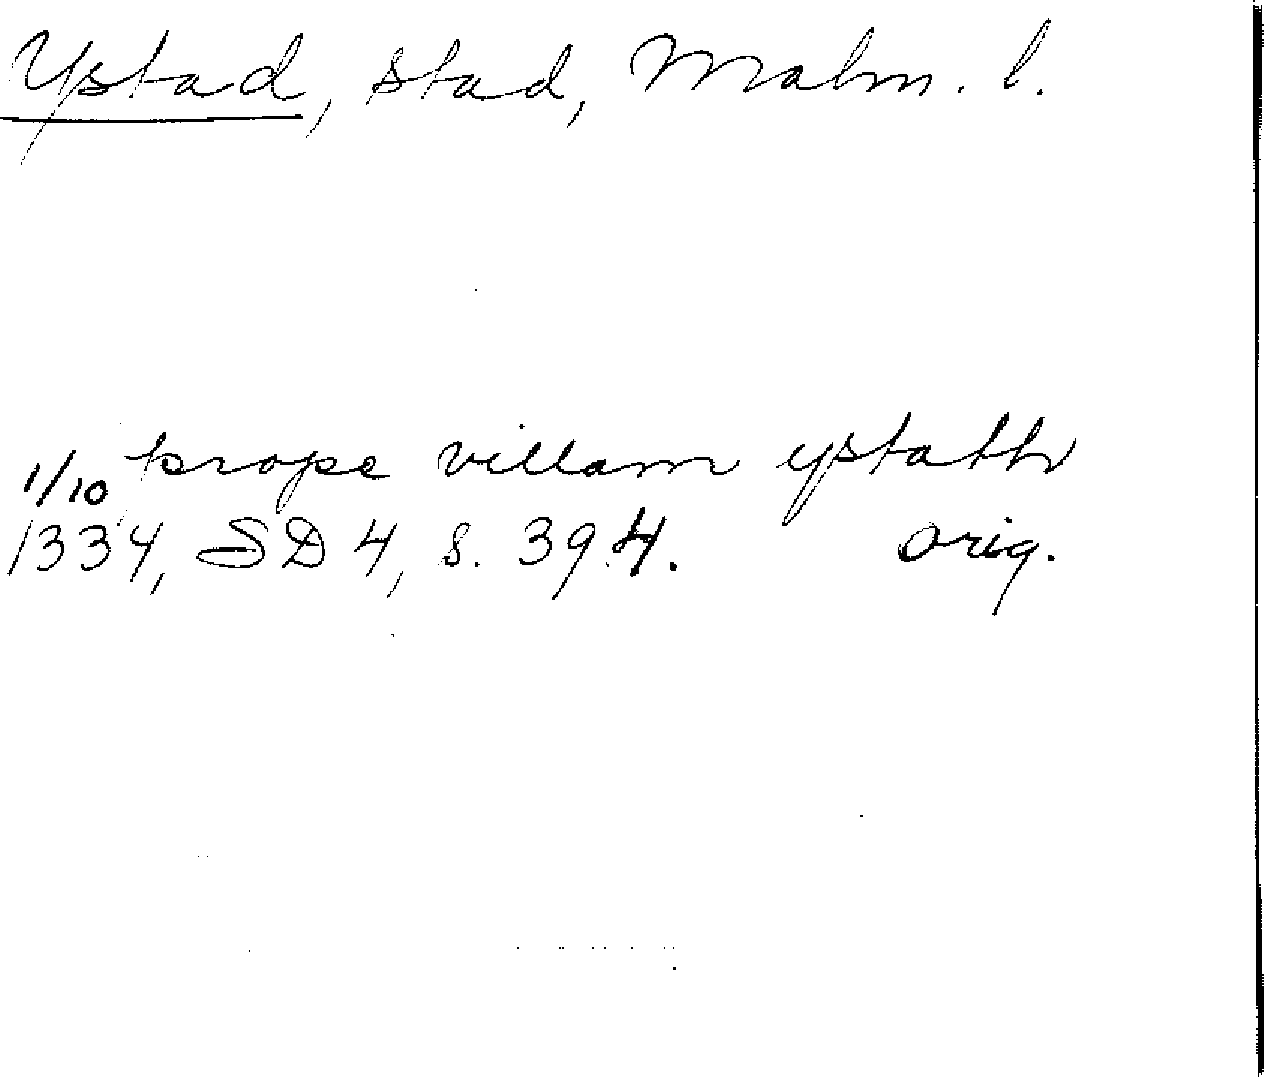 Ystad, stad, Malm. l.
1/10 prope villam ystath
1334, SD 4, s. 394. orig.